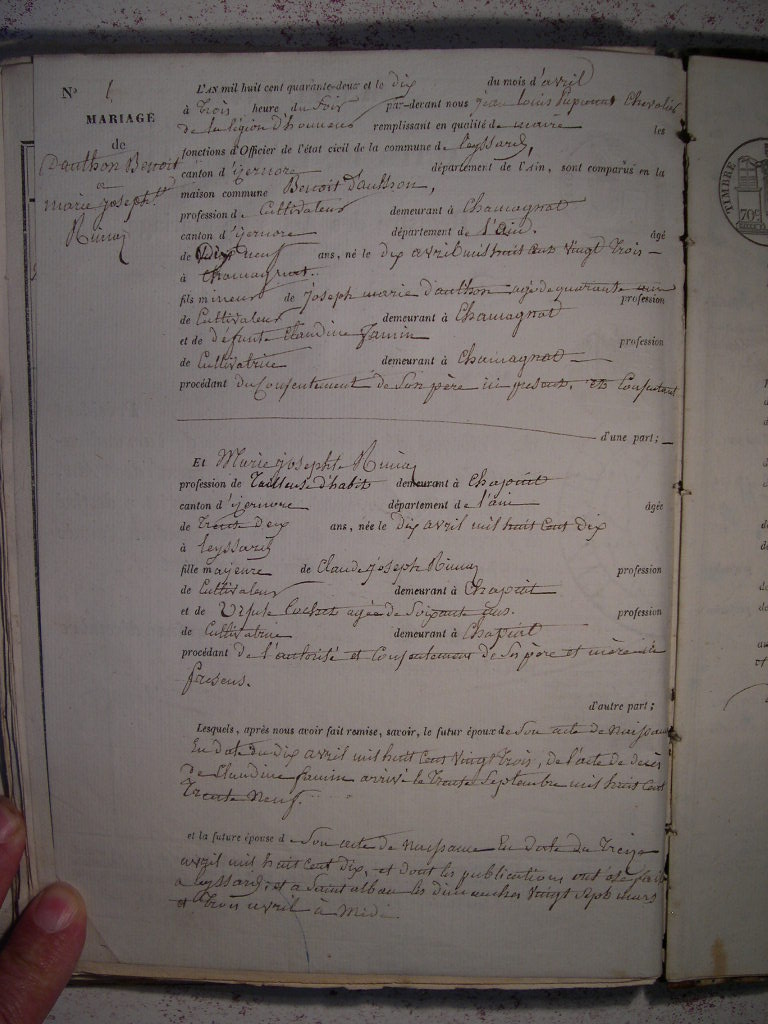 N° 4
MARIAGE
de
Dauthon Benoit
a
marie joseph.te
L'AN mil huit cent quarante-deux et le dix du mois d'avril
à trois heure du Soir par-devant nous jean Louis Chevalier
de la légion d'honneur remplissant en qualité de maire les
fonctions d'Officier de l'état civil de la commune de Leyssard,
canton d'izernore département de l'Ain, sont comparus en la
maison commune Benoit Dauthon,
profession de Cultivateur demeurant à Chamagnat
canton d'izernore département de l'ain. âgé
de Dix neuf ans, né le dix avril mil huit cent vingt trois
à Chamagnat.
fils mineur de joseph marie Dauthon agé de quarante profession
de Cultivateur demeurant à Chamagnat
et de défunte Claudine Famin profession
de Cultivatrice demeurant à Chamagnat
procédant du Consentement de Son père ici présent, et Consentant
d'une part;
Et Marie josephte
profession de Tailleuse d'habits demeurant à Chapiat
canton d'izernore département de l'ain âgée
de trente deux ans, née le dix avril mil huit Cent dix
à Leyssard
fille majeure de Claude joseph profession
de Cultivateur demeurant à Chapiat
et de Ursule agée de Soixante ans. profession
de Cultivatrice demeurant à Chapiat
procédant de l'autorité et Consentement de Ses père et mère ici
présens.
d'autre part;
Lesquels, après nous avoir fait remise, savoir, le futur époux de Son acte de Naissance
En date du dix avril mil huit Cent vingt trois, de l'acte de décès
de Claudine famin arrivé le Trente Septembre mil huit Cent
Trente Neuf.
et la future épouse de Son acte de Naissance En date du Treize
avril mil huit Cent Dix, et dont les publications ont été faites
a Leyssard, et a Saint alban les dimanches vingt Sept mars
et trois avril à Midi.
TIMBRE
70c